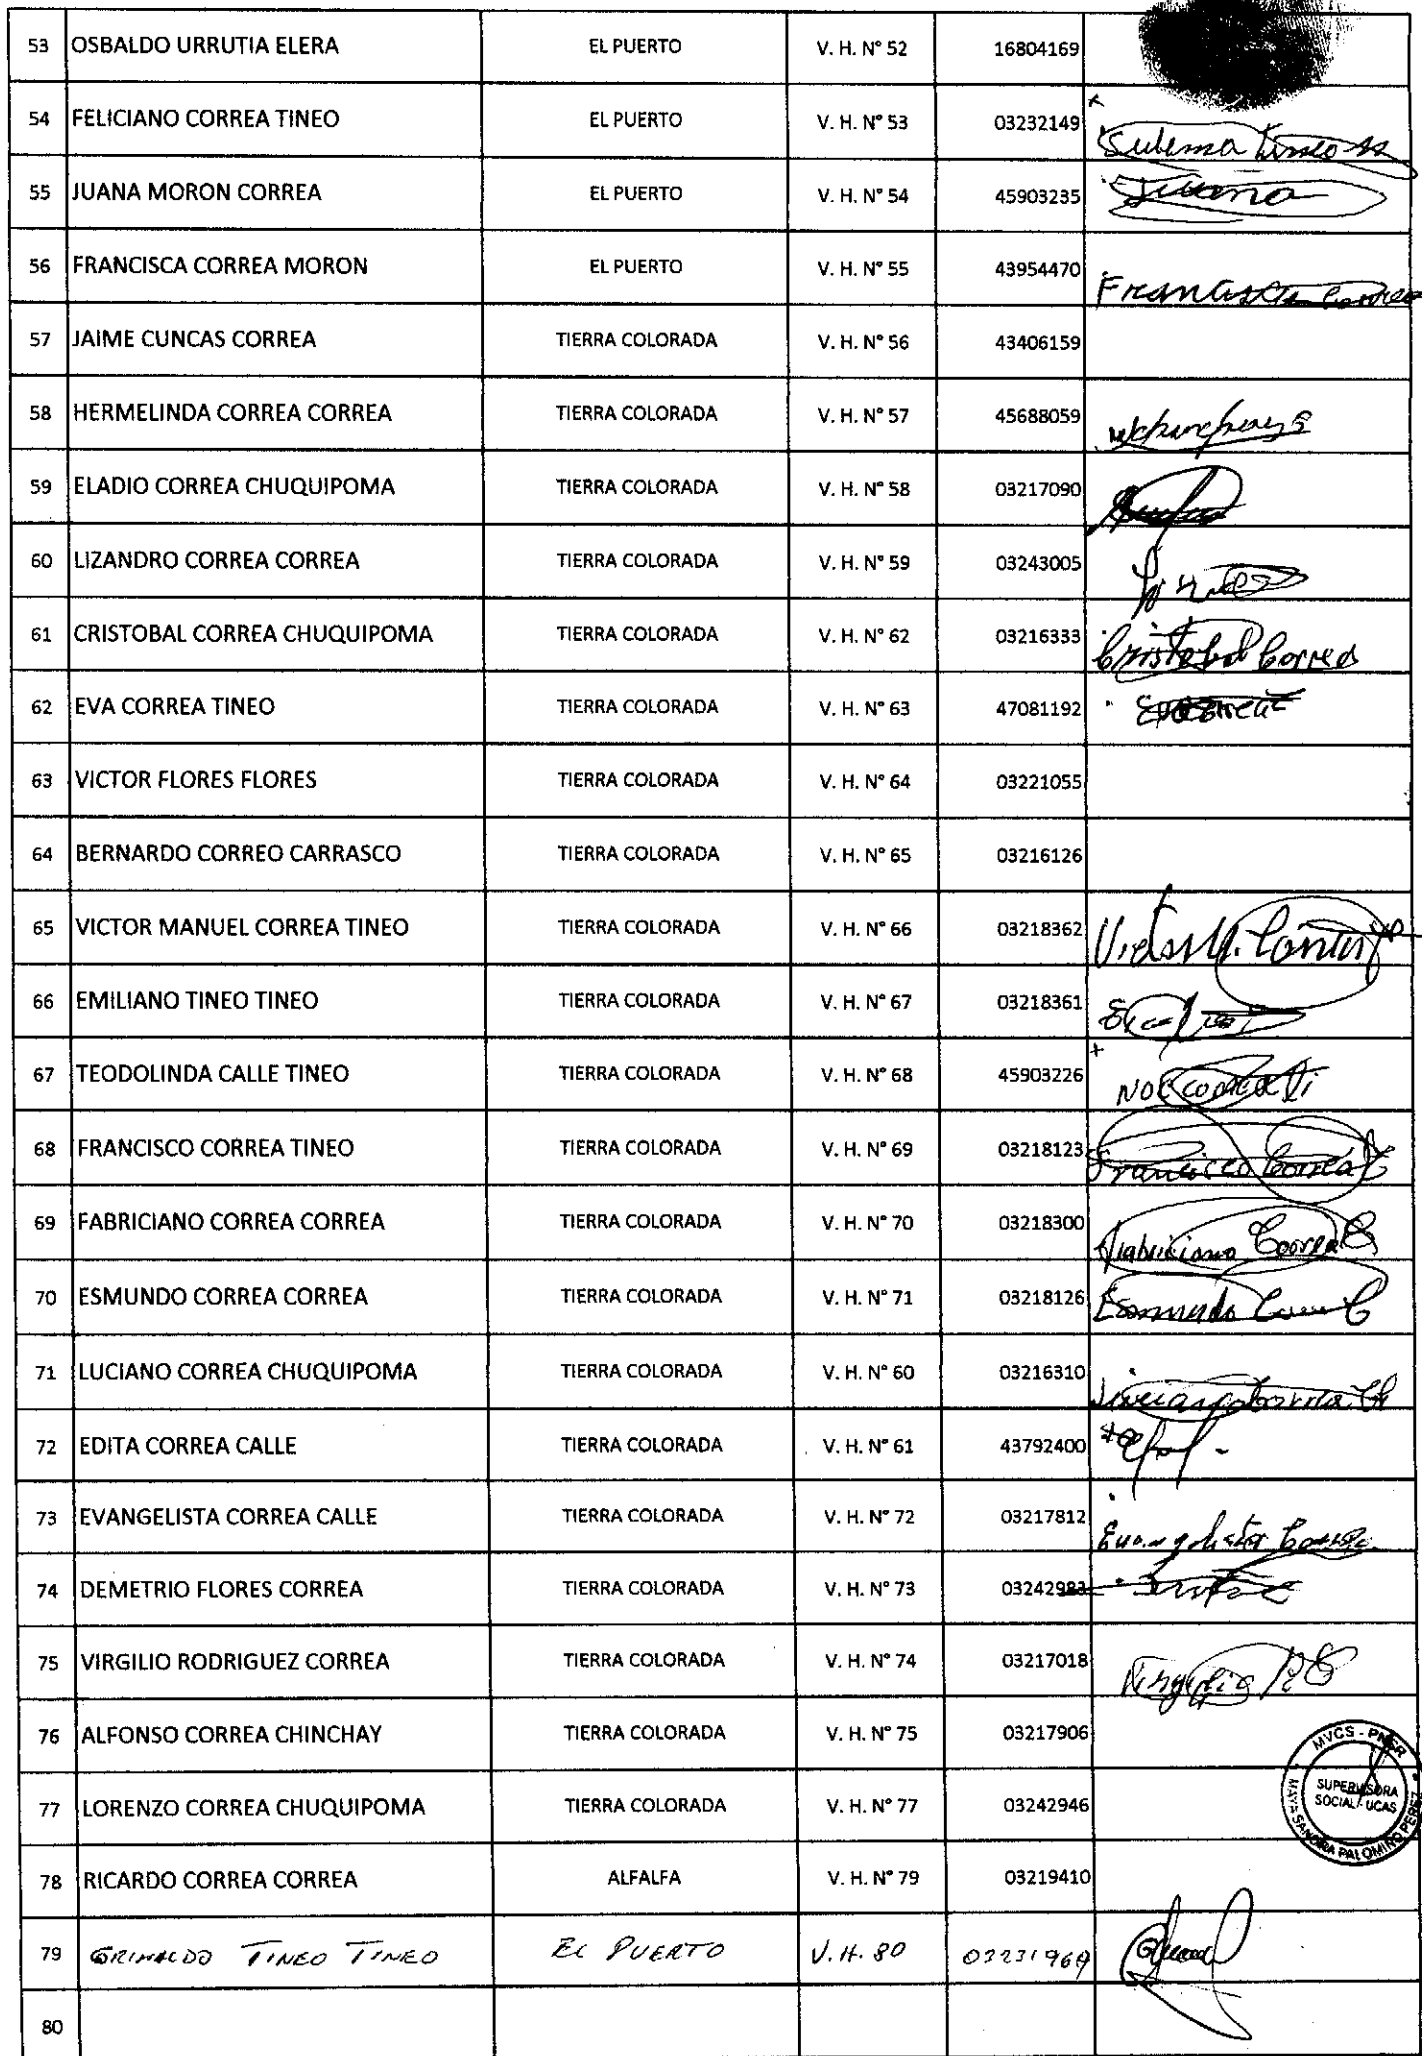 53 OSBALDO URRUTIA ELERA EL PUERTO V. H. N° 52 16804169
54 FELICIANO CORREA TINEO EL PUERTO V. H. N° 53 03232149 Sulema Tineo
55 JUANA MORON CORREA EL PUERTO V. H. N° 54 45903235 Juana
56 FRANCISCA CORREA MORON EL PUERTO V. H. N° 55 43954470 Francisca Correa
57 JAIME CUNCAS CORREA TIERRA COLORADA V. H. N° 56 43406159
58 HERMELINDA CORREA CORREA TIERRA COLORADA V. H. N° 57 45688059
59 ELADIO CORREA CHUQUIPOMA TIERRA COLORADA V. H. N° 58 03217090
60 LIZANDRO CORREA CORREA TIERRA COLORADA V. H. N° 59 03243005
61 CRISTOBAL CORREA CHUQUIPOMA TIERRA COLORADA V. H. N° 62 03216333 Cristobal Correa
62 EVA CORREA TINEO TIERRA COLORADA V. H. N° 63 47081192
63 VICTOR FLORES FLORES TIERRA COLORADA V. H. N° 64 03221055
64 BERNARDO CORREO CARRASCO TIERRA COLORADA V. H. N° 65 03216126
65 VICTOR MANUEL CORREA TINEO TIERRA COLORADA V. H. N° 66 03218362
66 EMILIANO TINEO TINEO TIERRA COLORADA V. H. N° 67 03218361
67 TEODOLINDA CALLE TINEO TIERRA COLORADA V. H. N° 68 45903226
68 FRANCISCO CORREA TINEO TIERRA COLORADA V. H. N° 69 03218123 Francisco Correa T
69 FABRICIANO CORREA CORREA TIERRA COLORADA V. H. N° 70 03218300 Fabriciano Correa C
70 ESMUNDO CORREA CORREA TIERRA COLORADA V. H. N° 71 03218126 Esmundo Correa C
71 LUCIANO CORREA CHUQUIPOMA TIERRA COLORADA V. H. N° 60 03216310 Luciano Correa Ch
72 EDITA CORREA CALLE TIERRA COLORADA V. H. N° 61 43792400
73 EVANGELISTA CORREA CALLE TIERRA COLORADA V. H. N° 72 03217812 Evangelista Correa
74 DEMETRIO FLORES CORREA TIERRA COLORADA V. H. N° 73 03242983
75 VIRGILIO RODRIGUEZ CORREA TIERRA COLORADA V. H. N° 74 03217018 Virgilio R C
76 ALFONSO CORREA CHINCHAY TIERRA COLORADA V. H. N° 75 03217906
MVCS - PNSR
SUPERVISORA
SOCIAL - UCAS
MAYA SANDRA PALOMINO PEREZ
77 LORENZO CORREA CHUQUIPOMA TIERRA COLORADA V. H. N° 77 03242946
78 RICARDO CORREA CORREA ALFALFA V. H. N° 79 03219410
79 GRIMALDO TINEO TINEO EL PUERTO V. H. 80 03231969
80